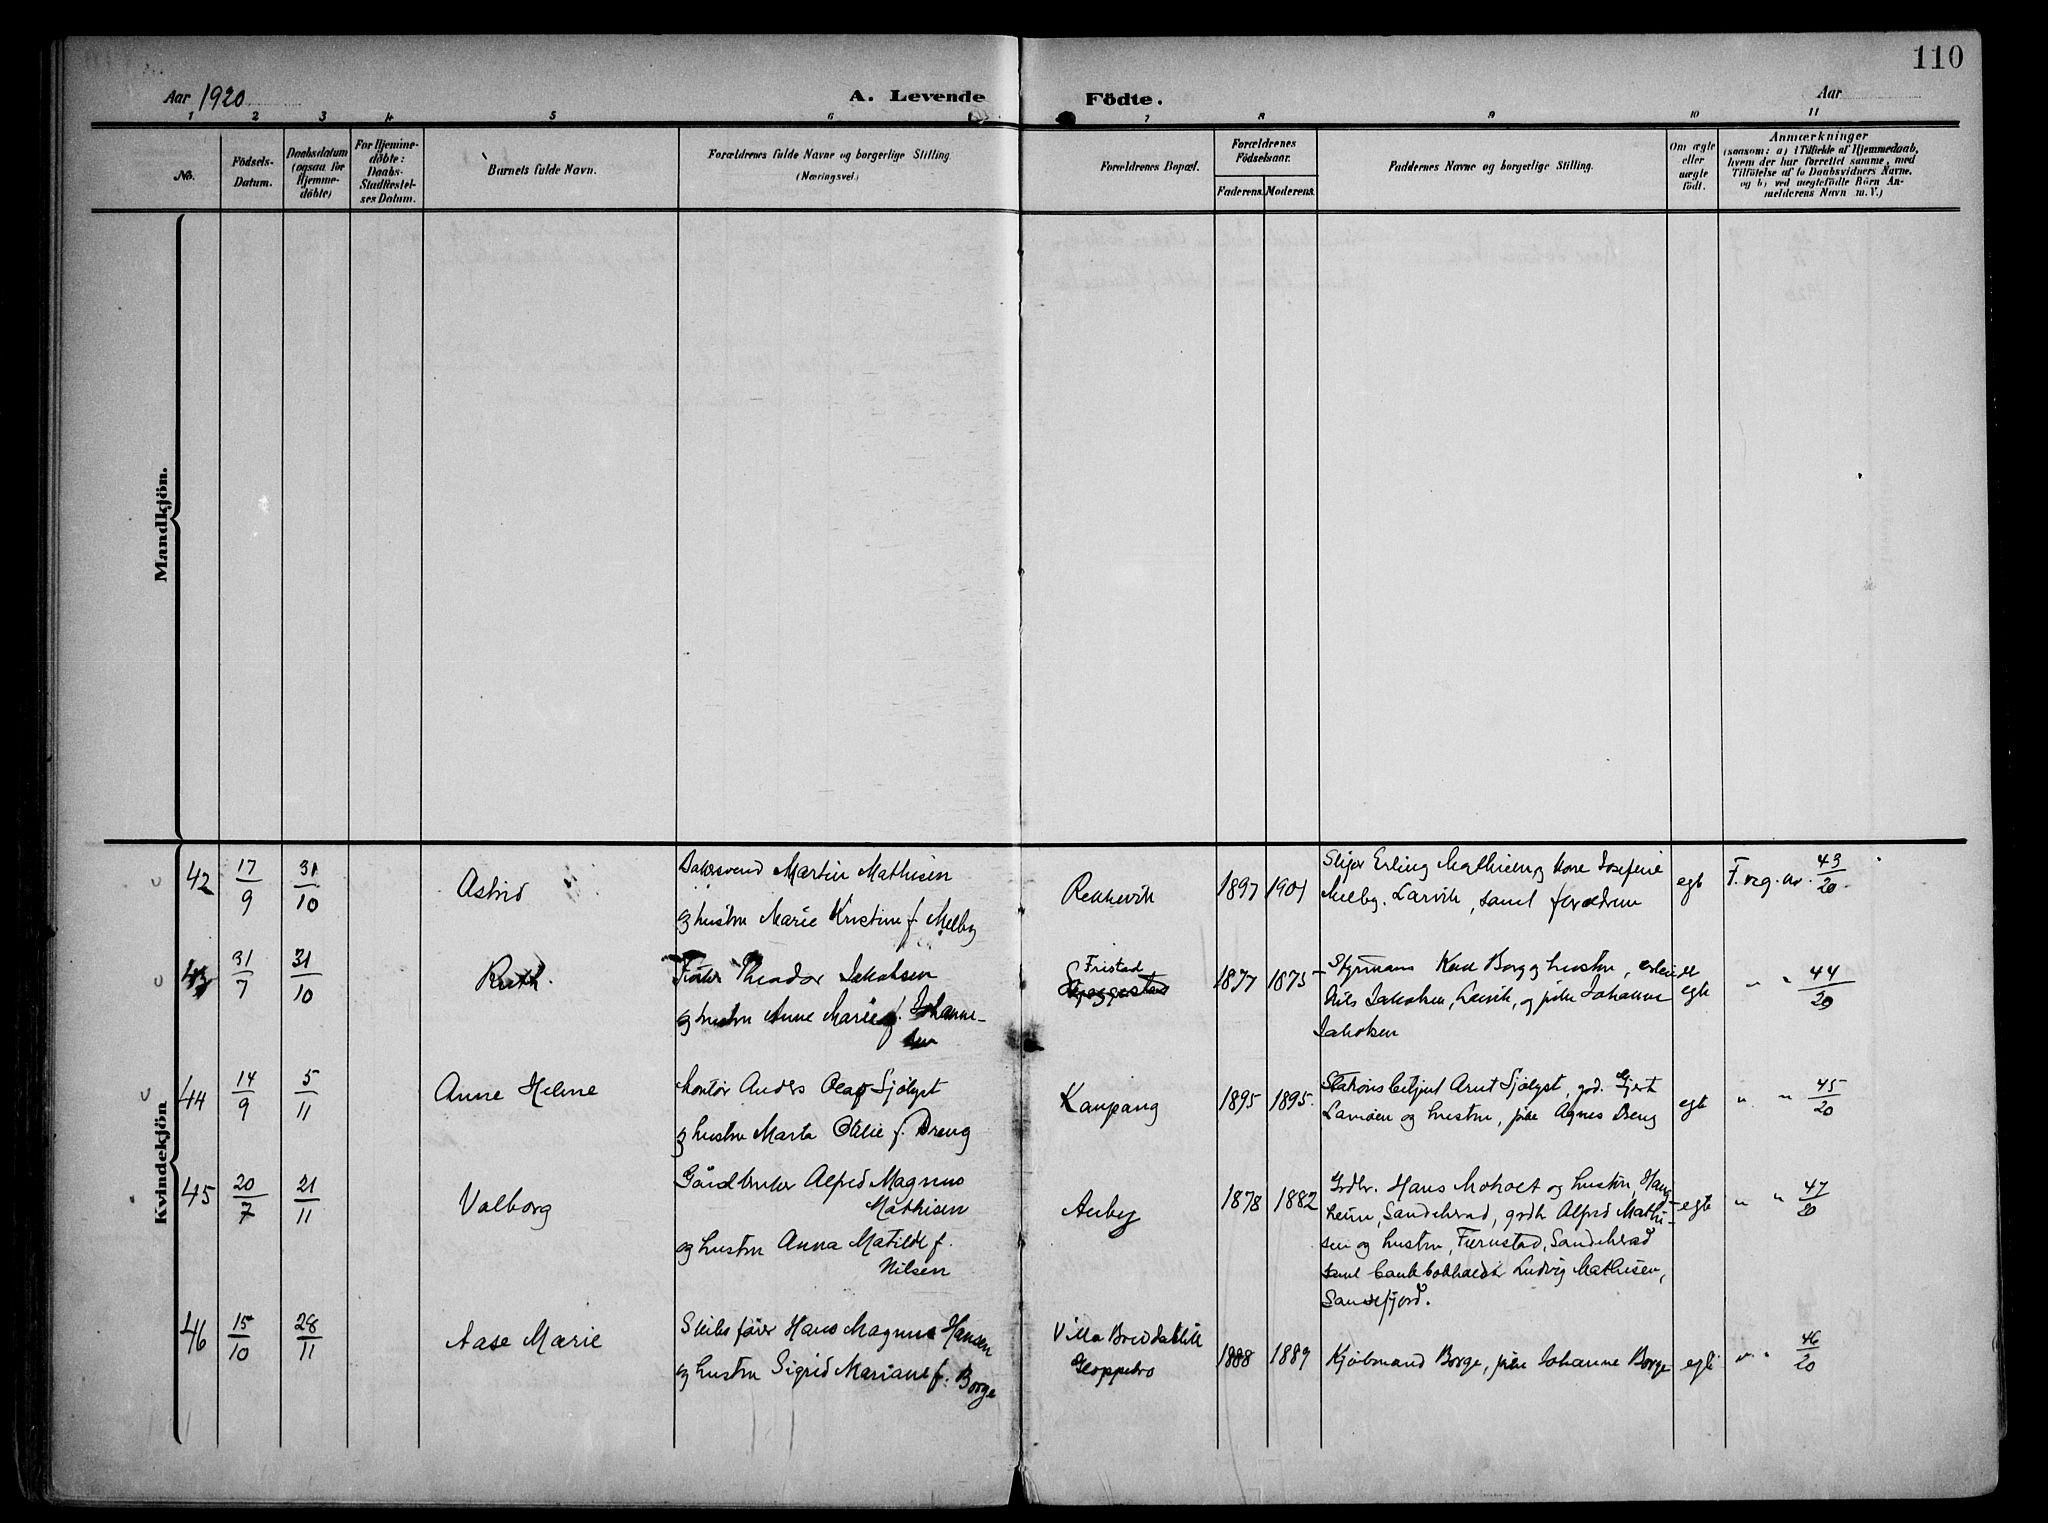 110
Aar 1920
A. Levende Födte.
Aar
1 2 3 4 5 6 7 8 9 10 11
No.
Födsels-Datum.
Daabsdatum (ogsaa for Hjemmedöbte)
For Hjemmedöbte: Daabs-Stadfæstelses Datum.
Barnets fulde Navn.
Forældrenes fulde Navne og borgerlige Stilling.
(Næringsvei.)
Forældrenes Bopæl.
Forældrenes Födselsaar.
Faderens. Moderens.
Faddernes Navne og borgerlige Stilling.
Om ægte eller uægte födt.
Anmærkninger
(saasom: a) i Tilfælde af Hjemmedaab,
hvem der har forrettet samme, med
Tilföielse af to Daabsvidners Navne.
og b) ved uægtefödte Börn An-
melderens Navn m. V.)
Mandkjön.
Kvindekjön
42 17/9 31/10 Astrid
Bakersvend Martin Mathisen
og hustru Marie Kristine f. Melby
Rekkevik 1897 1901
Erling Mathisen og Kone Josefine
Melby, Larvik, samt forældrene
egt F. reg. nr. 43/20
43 31/7 31/10 Ruth.
Theodor Jakobsen
og hustru Anne Marie f. Johanne-
sen
Fristad
1877 1875
Styrmann Karl Borg og hustru,
Nils Jakobsen, Larvik, og pike Johanne
Jakobsen
egte " " 44/20
44 14/9 5/11 Anne Helene
Kontor Anders Olaf Sjölyst
og hustru Marta Otilie f. Dreng
Kaupang 1895 1895.
Stationsbetjent Arnt Sjölyst, grd. Gjert
Lamöen og hustru, pike Agnes Dreng
egte " " 45/20
45 20/7 21/11 Valborg
Gårdbruker Alfred Magnus
Mathisen
og hustru Anna Matilde f.
Nilsen
Auby 1878 1882
Grdbr. Hans Moholt og hustru, Haug-
heim, Sandeherad, grdbr Alfred Mathi-
sen og hustru, Furustad, Sandeherad
samt bankbokholder Ludvig Mathisen,
Sandefjord.
egte " " 47/20
46 15/10 28/11 Aase Marie
Skibsförer Hans Magnus Hansen
og hustru Sigrid Mariane f. Borge
Villa Breidablik
Gloppebro
1888 1889
Kjöbmand Borge, pike Johanne Borge
egte " " 46/20